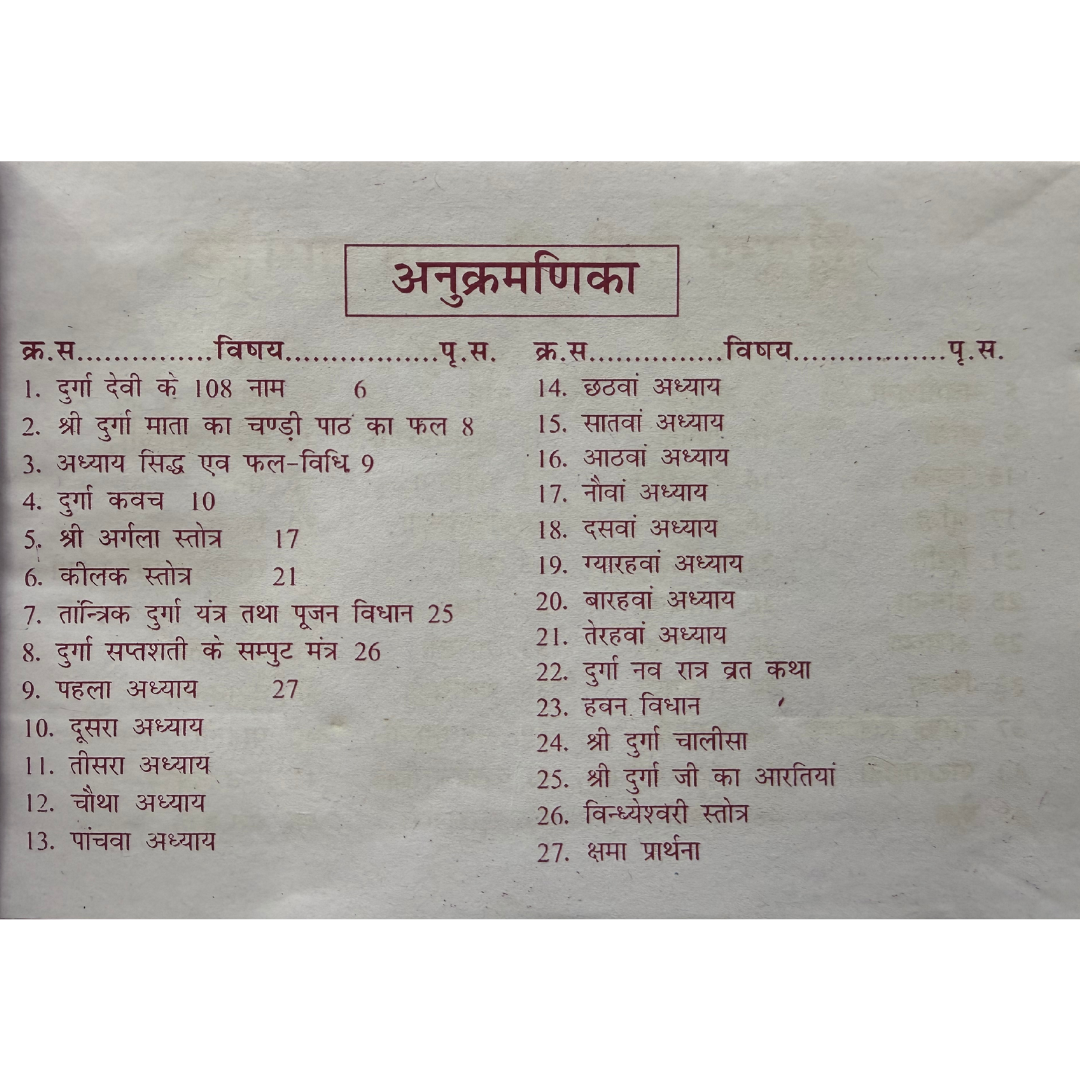 अनुक्रमणिका
क्र.स...............विषय.................पृ.स.
1. दुर्गा देवी के 108 नाम 6
2. श्री दुर्गा माता का चण्ड़ी पाठ का फल 8
3. अध्याय सिद्ध एव फल-विधि 9
4. दुर्गा कवच 10
5. श्री अर्गला स्तोत्र 17
6. कीलक स्तोत्र 21
7. तांन्त्रिक दुर्गा यंत्र तथा पूजन विधान 25
8. दुर्गा सप्तशती के सम्पुट मंत्र 26
9. पहला अध्याय 27
10. दूसरा अध्याय
11. तीसरा अध्याय
12. चौथा अध्याय
13. पांचवा अध्याय
क्र.स...............विषय.................पृ.स.
14. छठवां अध्याय
15. सातवां अध्याय
16. आठवां अध्याय
17. नौवां अध्याय
18. दसवां अध्याय
19. ग्यारहवां अध्याय
20. बारहवां अध्याय
21. तेरहवां अध्याय
22. दुर्गा नव रात्र व्रत कथा
23. हवन विधान
24. श्री दुर्गा चालीसा
25. श्री दुर्गा जी का आरतियां
26. विन्ध्येश्वरी स्तोत्र
27. क्षमा प्रार्थना